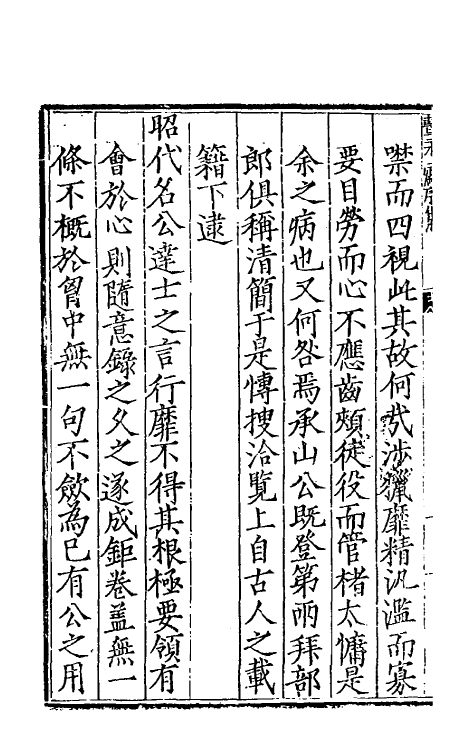 噤而四視此其故何㢤涉獵靡精汎濫而寡
要目勞而心不應齒頰徒役而管楮太慵是
余之病也又何咎焉承山公既登第而拜部
郎俱稱清簡于是慱搜洽覽上自古人之載
籍下逮
昭代名公達士之言行靡不得其根極要領有
會於心則隨意錄之久之遂成鉅卷盖無一
條不概於胷中無一句不歛為已有公之用